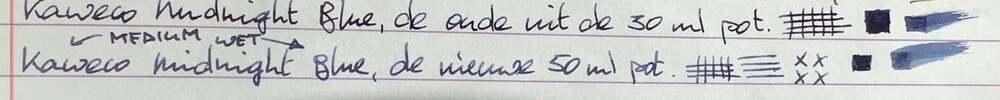 Kaweco Midnight Blue, de oude uit de 30 ml pot.
MEDIUM WET
Kaweco Midnight Blue, de nieuwe 50 ml pot.